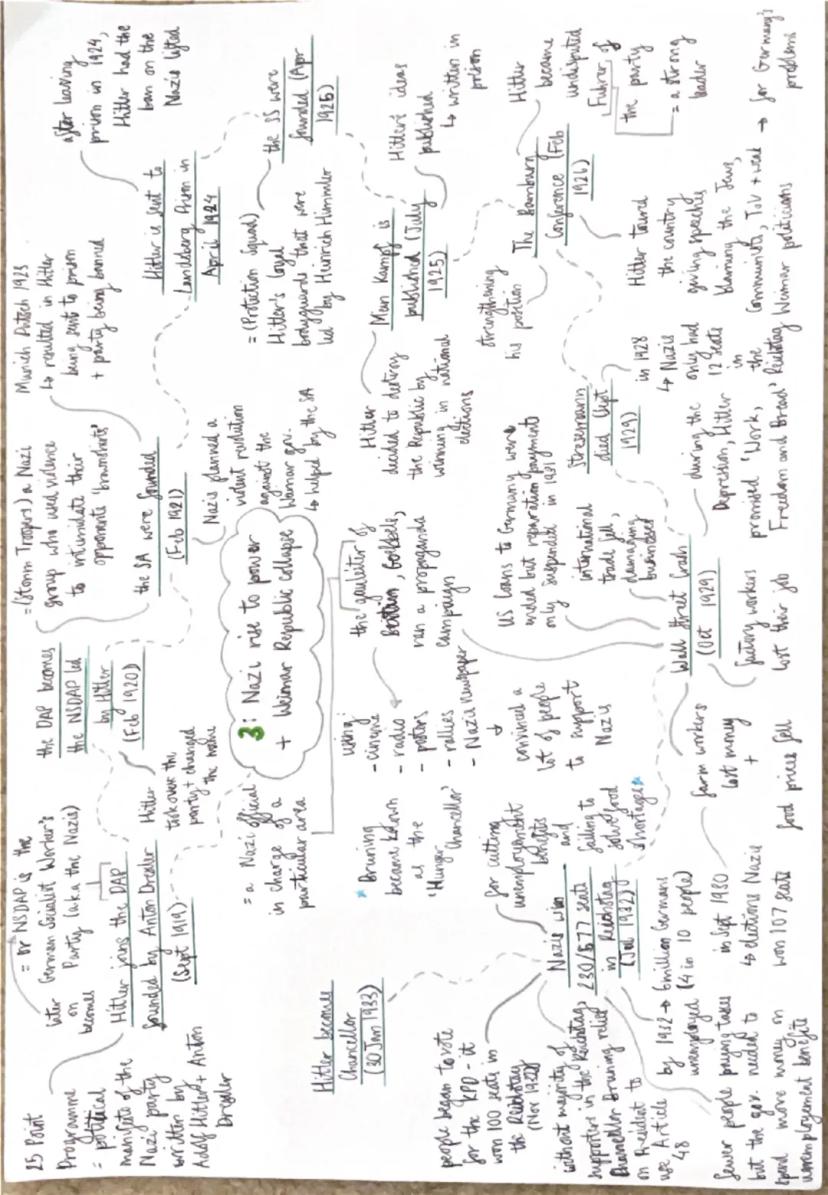 25 Point
Programme
= political
manifesto of the
Nazi party
written by
Adolf Hitler + Anton
Drexler
= or NSDAP is the
German Socialist Worker's
Party (aka the Nazis)
later
on
becomes
Hitler joins the DAP
founded by Anton Drexler
(Sept 1919)
Hitler
took over the
party + changed
the name
the DAP becomes
the NSDAP led
by Hitler
(Feb 1920)
= (Storm Troopers) a Nazi
group who used violence
to intimidate their
opponents 'brownshirts'
the SA were founded
(Feb 1921)
Munich Putsch 1923
↳ resulted in Hitler
being sent to prison
+ party being banned
Nazis planned a
violent revolution
against the
Weimar gov.
↳ helped by the SA
Hitler is sent to
Landsberg Prison in
April 1924
after leaving
prison in 1924,
Hitler had the
ban on the
Nazis lifted
the SS were
founded (Apr
1925)
= (Protection Squad)
Hitler's loyal
bodyguards that were
led by Heinrich Himmler
3: Nazi rise to power
+ Weimar Republic collapse
= a Nazi official
in charge of a
particular area
the gauleiter of
Berlin, Goebbels,
ran a propaganda
campaign
using
- cinema
- radio
- posters
- rallies
- Nazis newspaper
↓
convinced a
lot of people
to support
Nazis
Mein Kampf is
published (July
1925)
Hitler's ideas
published
↳ written in
prison
Hitler
decided to destroy
the Republic by
winning in national
elections
The Bamburg
Conference (Feb
1926)
Hitler
became
undisputed
Fuhrer of
the party
= a strong
leader
strengthening
his position
Hitler toured
the country
giving speeches
blaming the Jews,
Communists, ToV + weak
Weimar politicians
→ for Germany's
problems
Stresemann
died (Sept
1929)
in 1928
↳ Nazis
only had
12 seats
in
the
Reichstag
Wall Street Crash
(Oct 1929)
US loans to Germany were
ended but reparation payments
only suspended in 1931
international
trade fell,
damaging
businesses
during the
Depression, Hitler
promised 'Work,
Freedom and Bread'
factory workers
lost their job
farm workers
lost money
+
food prices fell
in Sept 1930
↳ elections Nazis
won 107 seats
Nazis win
230/577 seats
in Reichstag
(Jul 1932)
* Bruning
became known
as the
'Hunger
Chancellor'
for cutting
unemployment
benefits
and
failing to
solve food
shortages *
by 1932 → 6 million Germans
unemployed (4 in 10 people)
fewer people paying taxes
but the gov. needed to
spend more money on
unemployment benefits
without majority of
supporters in the Reichstag,
Chancellor Bruning relied
on President to
use Article
48
people began to vote
for the KPD - it
won 100 seats in
the Reichstag
(Nov 1932)
Hitler becomes
Chancellor
(30 Jan 1933)